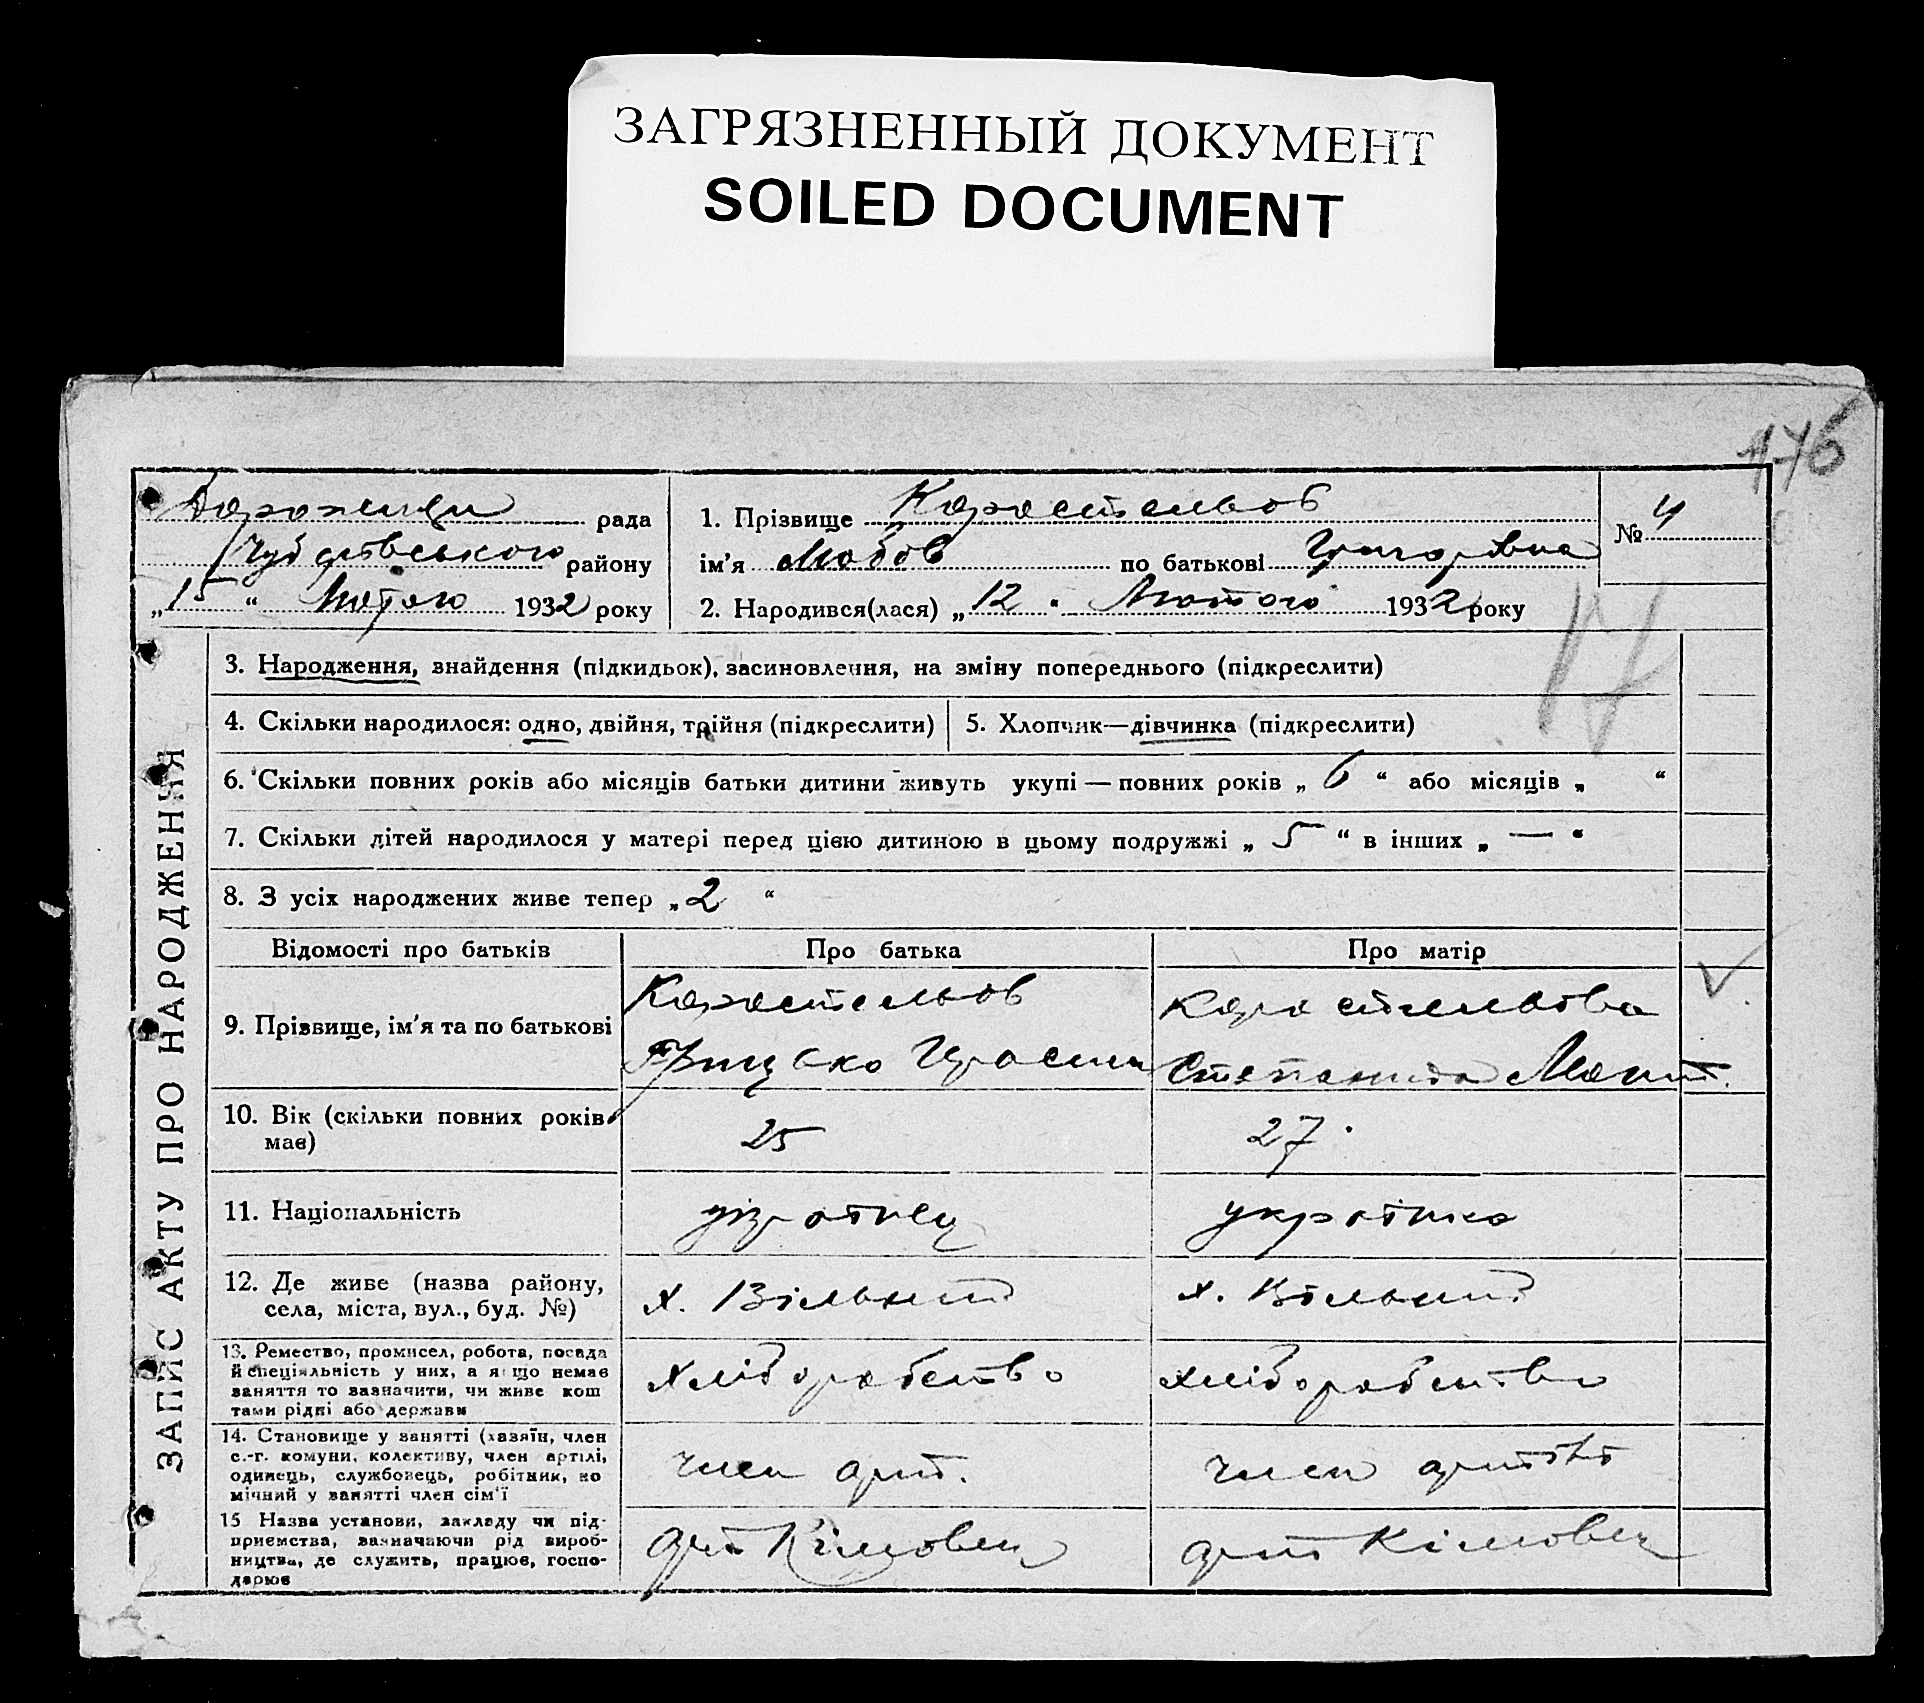 ЗАГРЯЗНЕННЫЙ ДОКУМЕНТ
SOILED DOCUMENT
176
рада
району
„15“ Лютого 1932 року
1. Прізвище Коростельов
ім'я Любов по батькові Григорівна
2. Народився(лася) „12“ Лютого 1932 року
№ 4
ЗАПИС АКТУ ПРО НАРОДЖЕННЯ
3. Народження, внайдення (підкидьок), засиновлення, на зміну попереднього (підкреслити)
4. Скільки народилося: одно, двійня, трійня (підкреслити)
5. Хлопчик—дівчинка (підкреслити)
6. Скільки повних років або місяців батьки дитини живуть укупі — повних років „ 6 “ або місяців „ “
7. Скільки дітей народилося у матері перед цією дитиною в цьому подружжі „ 5 “ в інших „ — “
8. З усіх народжених живе тепер „ 2 “
Відомості про батьків
Про батька
Про матір
9. Прізвище, ім'я та по батькові
Коростельов
Грицько
Коростельова
Степанида
10. Вік (скільки повних років
має)
25
27
11. Національність
українец
українка
12. Де живе (назва району,
села, міста, вул., буд. №)
х. Вільний
х. Вільний
13. Ремество, промисел, робота, посада
й спеціяльність у них, а якщо немає
заняття то зазначити, чи живе кош
тами рідні або держави
хліборобство
хліборобство
14. Становище у занятті (хазяїн, член
с.-г. комуни, колективу, член артілі,
одинець, службовець, робітник, по
мічний у занятті член сім'ї
член арт.
член
15 Назва установи, закладу чи під-
приємства, зазначаючи рід вироб-
ництва, де служить, працює, госпо-
дарює
арт. Кімовец
арт Кімовец